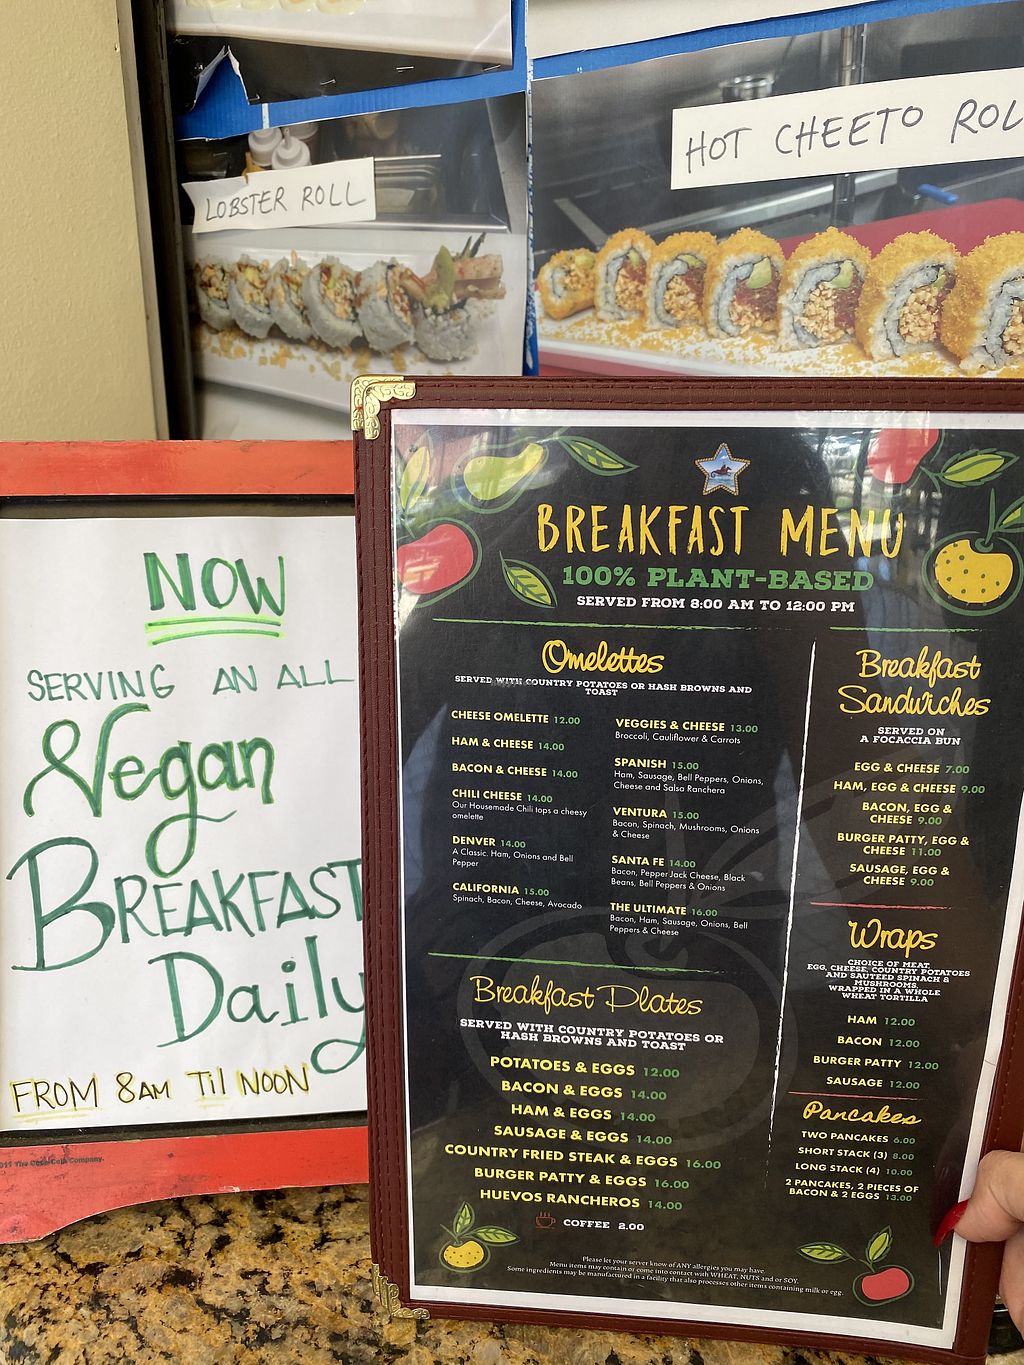 LOBSTER ROLL
HOT CHEETO
NOW
SERVING AN ALL
Vegan
BREAKFAST
Daily
FROM 8AM Til NOON
The Coca-Cola Company.
BREAKFAST MENU
100% PLANT-BASED
SERVED FROM 8:00 AM TO 12:00 PM
Omelettes
SERVED WITH COUNTRY POTATOES OR HASH BROWNS AND
TOAST
CHEESE OMELETTE 12.00
HAM & CHEESE 14.00
BACON & CHEESE 14.00
CHILI CHEESE 14.00
Our Housemade Chili tops a cheesy
omelette
DENVER 14.00
A Classic. Ham, Onions and Bell
Pepper
CALIFORNIA 15.00
Spinach, Bacon, Cheese, Avocado
VEGGIES & CHEESE 13.00
Broccoli, Cauliflower & Carrots
SPANISH 15.00
Ham, Sausage, Bell Peppers, Onions,
Cheese and Salsa Ranchera
VENTURA 15.00
Bacon, Spinach, Mushrooms, Onions
& Cheese
SANTA FE 14.00
Bacon, Pepper Jack Cheese, Black
Beans, Bell Peppers & Onions
THE ULTIMATE 16.00
Bacon, Ham, Sausage, Onions, Bell
Peppers & Cheese
Breakfast Plates
SERVED WITH COUNTRY POTATOES OR
HASH BROWNS AND TOAST
POTATOES & EGGS 12.00
BACON & EGGS 14.00
HAM & EGGS 14.00
SAUSAGE & EGGS 14.00
COUNTRY FRIED STEAK & EGGS 16.00
BURGER PATTY & EGGS 16.00
HUEVOS RANCHEROS 14.00
COFFEE 2.00
Breakfast
Sandwiches
SERVED ON
A FOCACCIA BUN
EGG & CHEESE 7.00
HAM, EGG & CHEESE 9.00
BACON, EGG &
CHEESE 9.00
BURGER PATTY, EGG &
CHEESE 11.00
SAUSAGE, EGG &
CHEESE 9.00
Wraps
CHOICE OF MEAT,
EGG, CHEESE, COUNTRY POTATOES
AND SAUTEED SPINACH &
MUSHROOMS.
WRAPPED IN A WHOLE
WHEAT TORTILLA
HAM 12.00
BACON 12.00
BURGER PATTY 12.00
SAUSAGE 12.00
Pancakes
TWO PANCAKES 6.00
SHORT STACK (3) 8.00
LONG STACK (4) 10.00
2 PANCAKES, 2 PIECES OF
BACON & 2 EGGS 13.00
Please let your server know of ANY allergies you may have.
Menu items may contain or come into contact with WHEAT, NUTS and or SOY.
Some ingredients may be manufactured in a facility that also processes other items containing milk or egg.